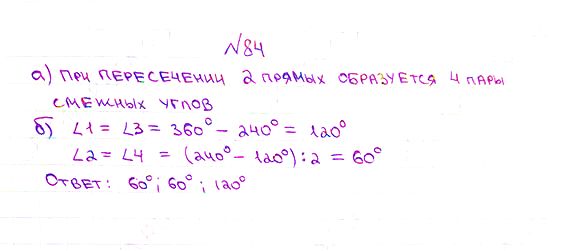 №84
а) При пересечении 2 прямых образуется 4 пары
смежных углов
б) ∠1 = ∠3 = 360° − 240° = 120°
∠2 = ∠4 = (240° − 120°) : 2 = 60°
Ответ: 60°; 60°; 120°